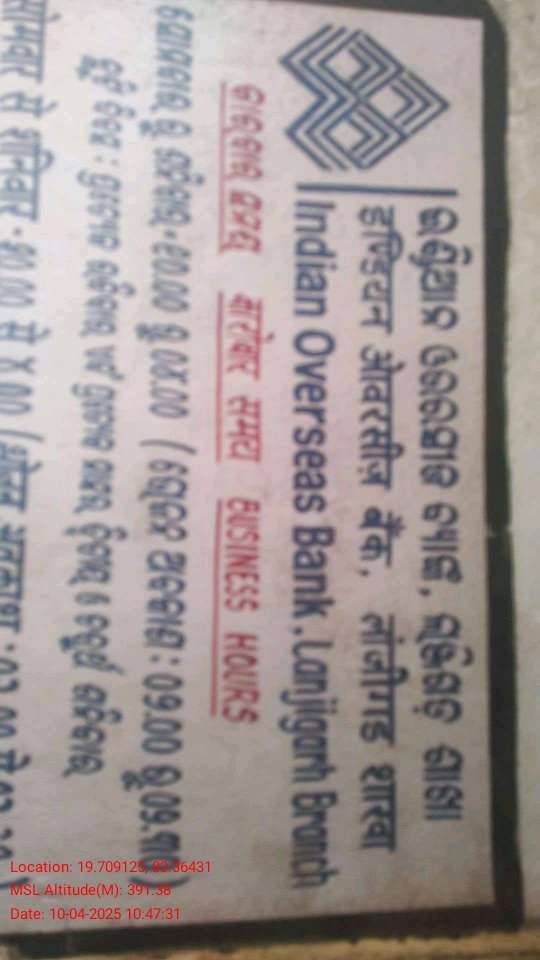 ଇଣ୍ଡିଆନ ଓଭରସୀଜ ବ୍ୟାଙ୍କ, ଲାଞ୍ଜିଗଡ଼ ଶାଖା
इण्डियन ओवरसीज़ बैंक, लांजीगड शाखा
Indian Overseas Bank, Lanjigarh Branch
କାରବାର ସମୟ कारोबार समय BUSINESS HOURS
ସୋମବାର ରୁ ଶନିବାର - ୧୦.୦୦ ରୁ ୦୪.୦୦
ଛୁଟି ଦିନ : ପ୍ରତ୍ୟେକ ରବିବାର ଏବଂ ପ୍ରତ୍ୟେକ ମାସର ଦ୍ୱିତୀୟ ଓ ଚତୁର୍ଥ ଶନିବାର
सोमवार से शनिवार - १०.०० से ४.००
Location: 19.709128, 83.36431
MSL Altitude(M): 391.38
Date: 10-04-2025 10:47:31